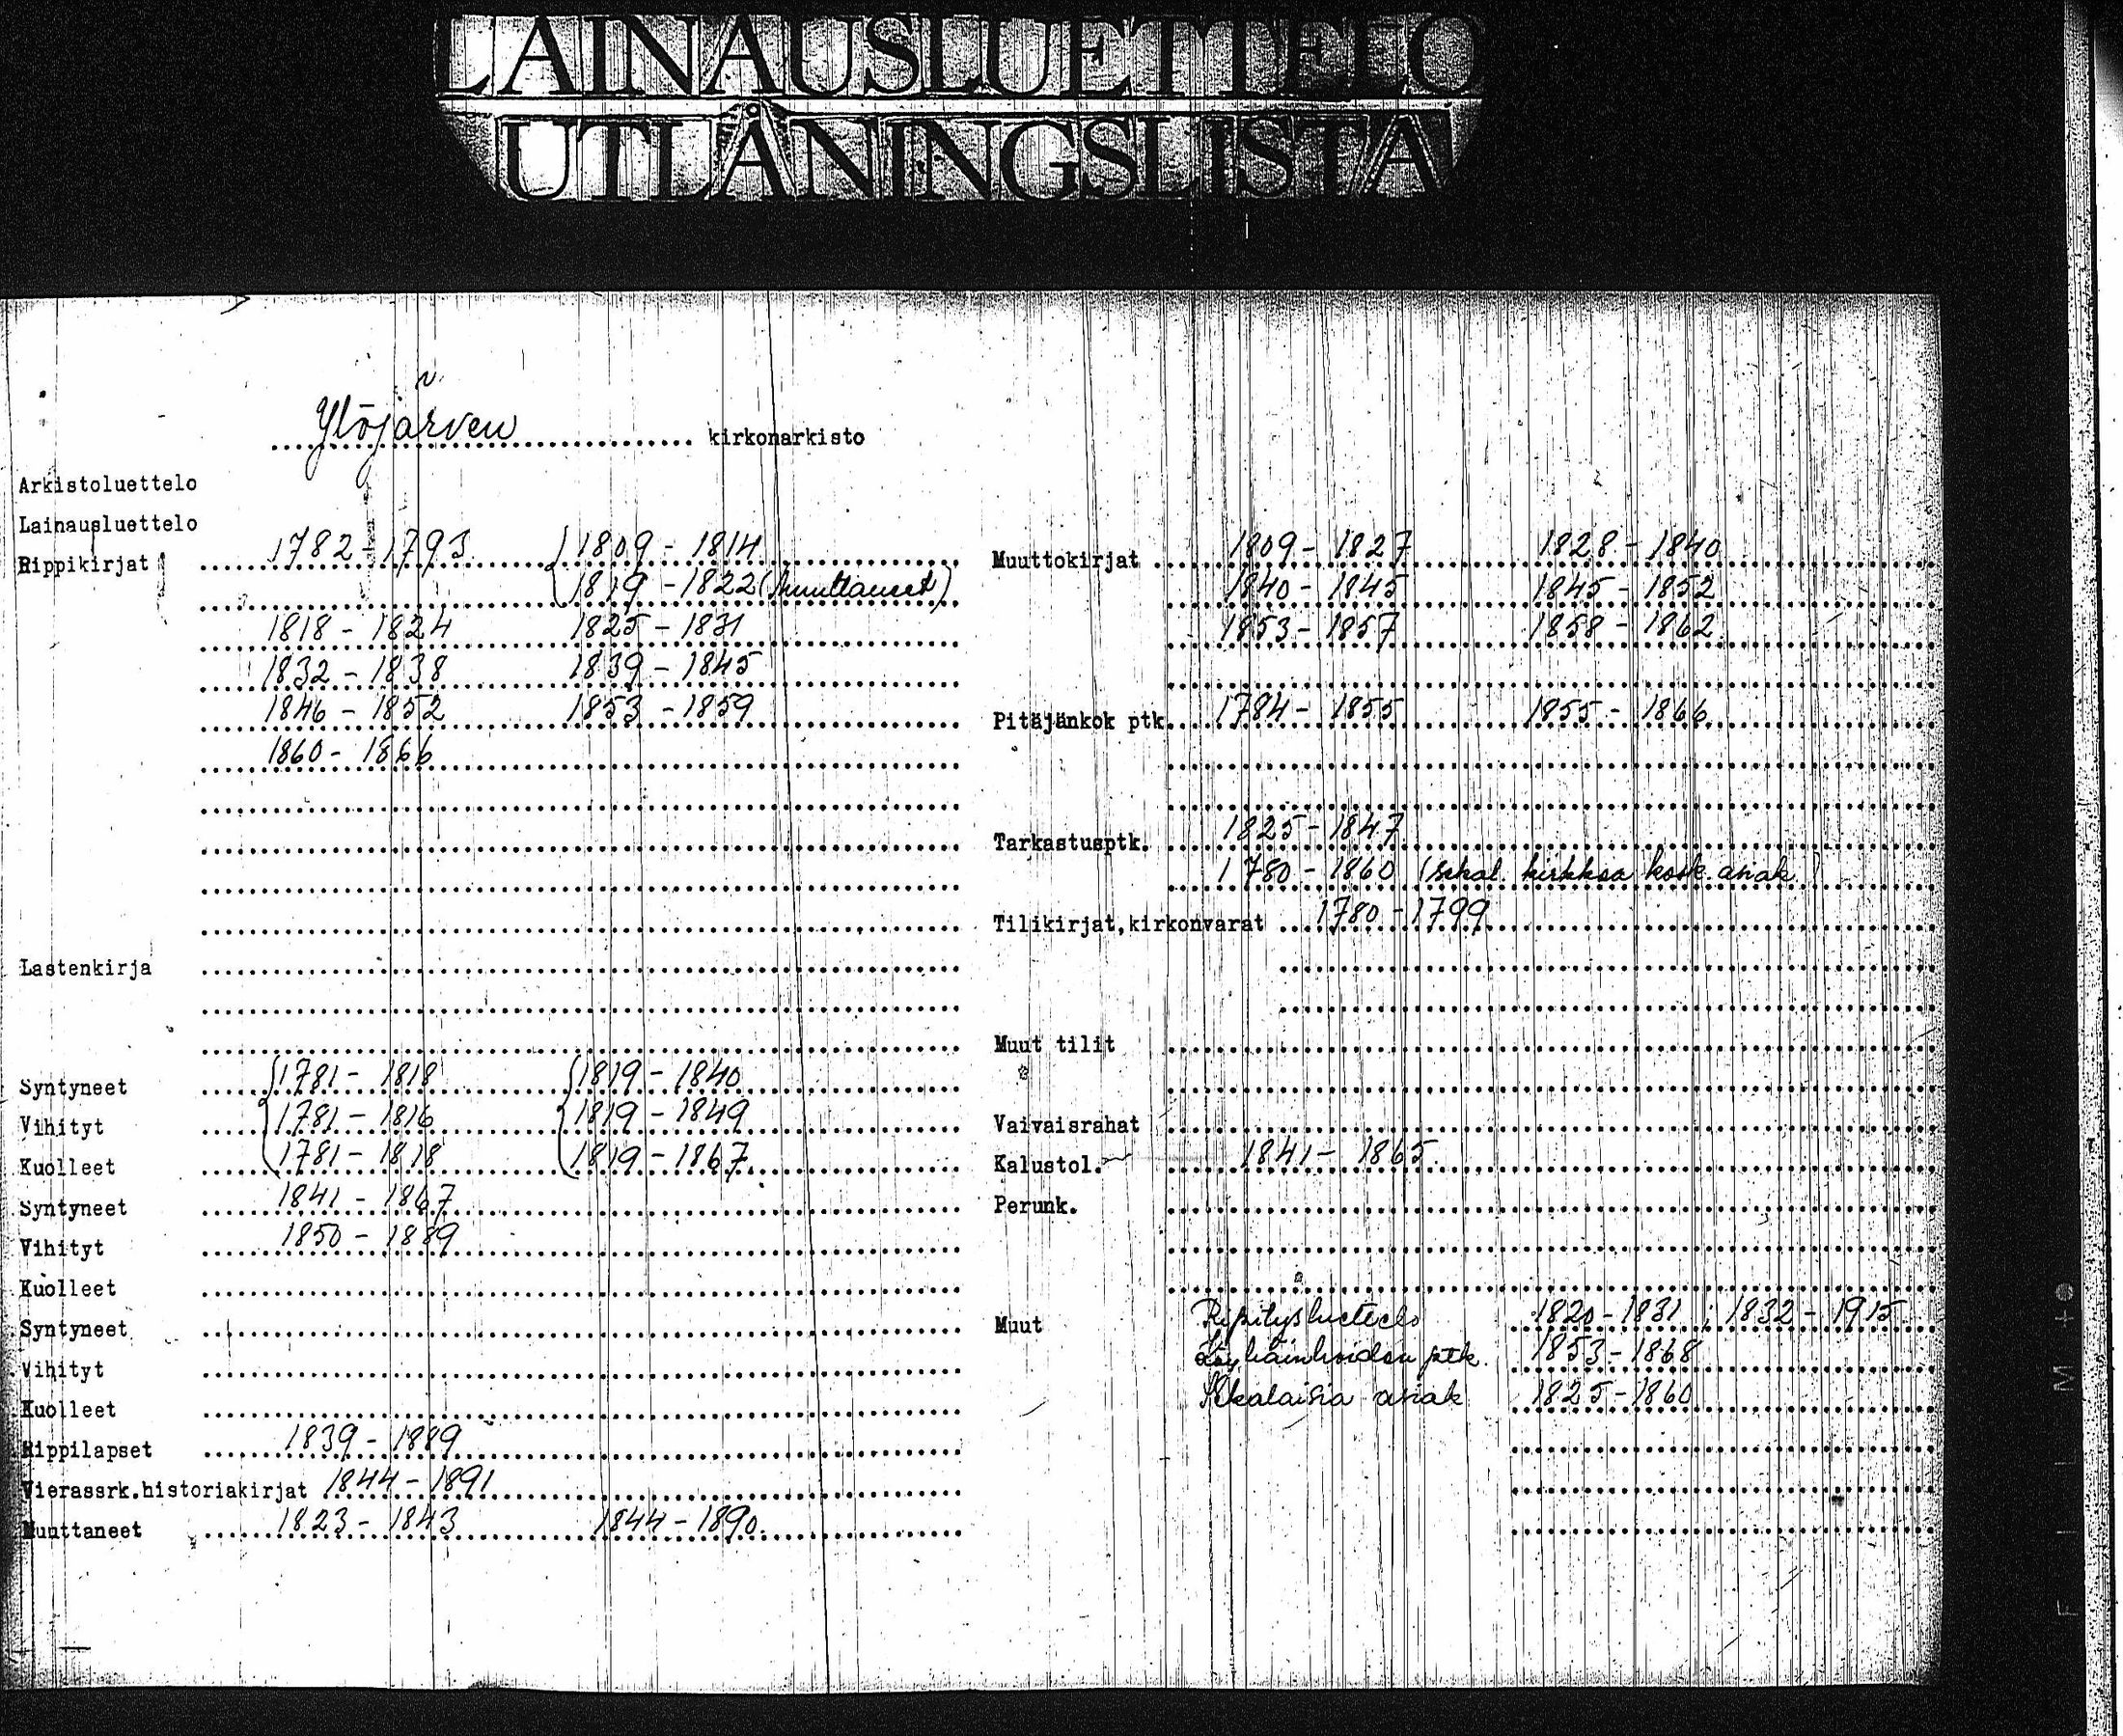 LAINAUSLUETTELO
UTLÅNINGSLISTA
Ylöjärven kirkonarkisto
Arkistoluettelo
Lainausluettelo
Rippikirjat 1782-1793 1809-1814
1819-1822 (muuttaneet)
1818-1824 1825-1831
1832-1838 1839-1845
1846-1852 1853-1859
1860-1866
Lastenkirja
Syntyneet 1781-1818 1819-1840
Vihityt 1781-1816 1819-1849
Kuolleet 1781-1818 1819-1867
Syntyneet 1841-1867
Vihityt 1850-1889
Kuolleet
Syntyneet
Vihityt
Kuolleet
Rippilapset 1839-1889
Vierassrk.historiakirjat 1844-1891
Muuttaneet 1823-1843 1844-1890
Muuttokirjat 1809-1827 1828-1840
1840-1845 1845-1852
1853-1857 1858-1862
Pitäjänkok ptk. 1784-1855 1855-1866
Tarkastusptk. 1825-1847
1780-1860 (sekal. kirkkoa kosk. asiak.)
Tilikirjat,kirkonvarat 1780-1799
Muut tilit
Vaivaisrahat
Kalustol. 1841-1865
Perunk.
Muut Ripitysluettelo 1820-1831; 1832-1915
ptk. 1853-1868
Sekalaisia asiak. 1825-1860
FILM